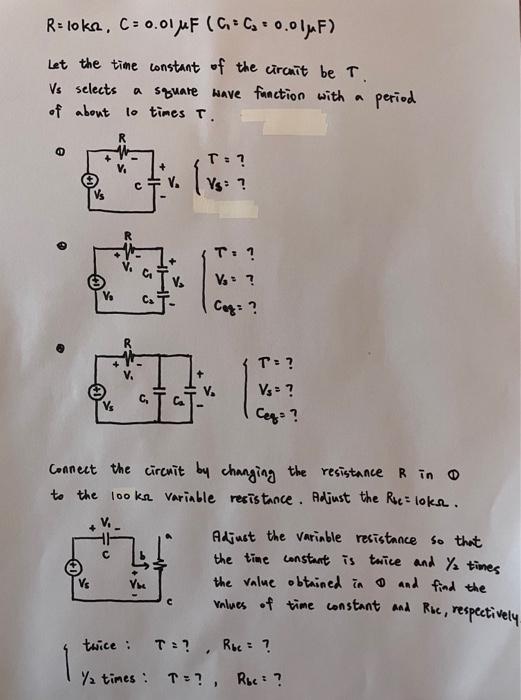 R=10kΩ, C=0.01μF (C₁=C₂=0.01μF)
Let the time constant of the circuit be T.
Vs selects a square wave function with a period
of about 10 times T.
①
R
+ V₁ -
Vs
C
+ V₂ -
T = ?
Vs = ?
②
R
+ V₁ -
Vs
C₁
C₂
+ V₂ -
T = ?
Vs = ?
Ceq = ?
③
R
+ V₁ -
Vs
C₁
C₂
+ V₂ -
T = ?
Vs = ?
Ceq = ?
Connect the circuit by changing the resistance R in ①
to the 100kΩ variable resistance. Adjust the Rbc=10kΩ.
+ V₁ -
C
Vs
a
b
+ Vbc -
c
Adjust the variable resistance so that
the time constant is twice and 1/2 times
the value obtained in ① and find the
values of time constant and Rbc, respectively.
twice : T = ? , Rbc = ?
1/2 times : T = ? , Rbc = ?